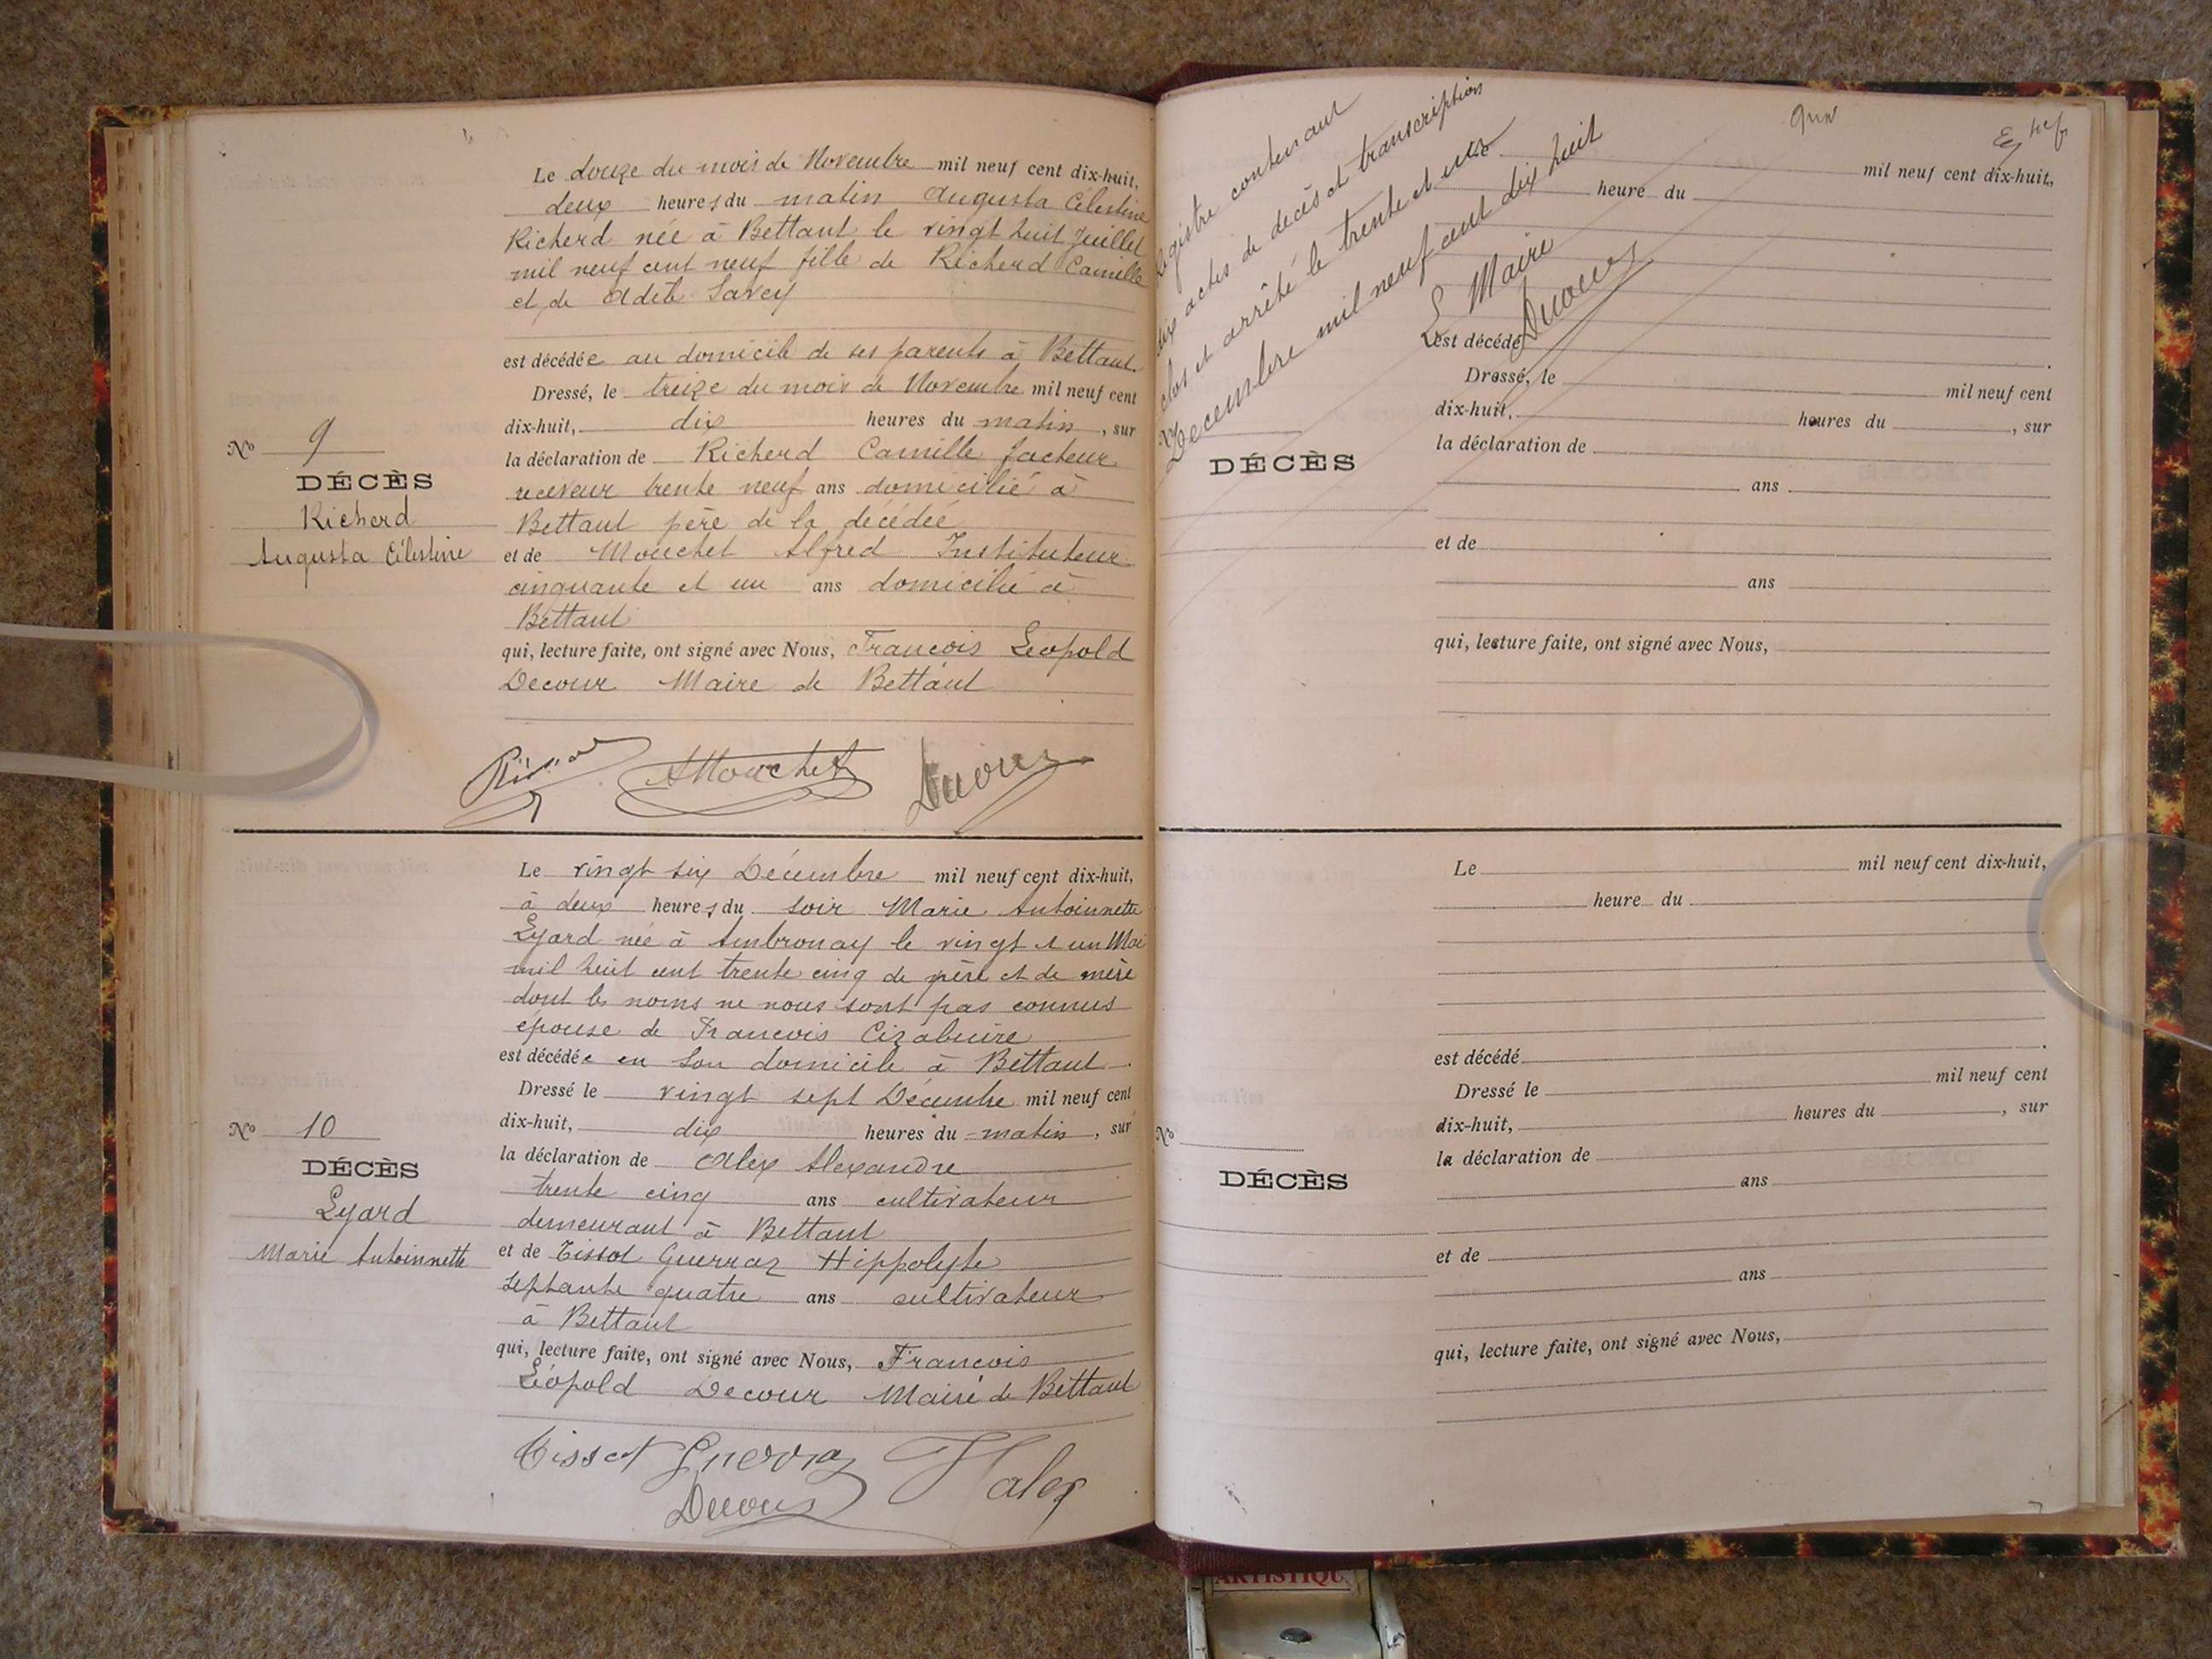 Le douze du mois de Novembre mil neuf cent dix-huit,
deux heures du matin Augusta Célestine
Richerd née à Bettant le vingt huit Juillet
mil neuf cent neuf fille de Richerd Camille
et de Adèle Savey
est décédée au domicile de ses parents à Bettant.
Dressé, le treize du mois de Novembre mil neuf cent
dix-huit, dix heures du matin, sur
la déclaration de Richerd Camille facteur
receveur trente neuf ans domicilié à
Bettant père de la décédée
et de Mouchet Alfred Instituteur
cinquante et un ans domicilié à
Bettant
qui, lecture faite, ont signé avec Nous, François Léopold
Decour Maire de Bettant
No 9
DÉCÈS
Richerd
Augusta Célestine
AMouchet Decour
Le vingt six Décembre mil neuf cent dix-huit,
à deux heures du soir Marie Antoinnette
Lyard née à Ambronay le vingt et un Mai
mil huit cent trente cinq de père et de mère
dont les noms ne nous sont pas connus
épouse de François Cizabuire
est décédée en son domicile à Bettant.
Dressé le vingt sept Décembre mil neuf cent
dix-huit, dix heures du matin, sur
la déclaration de Alex Alexandre
trente cinq ans cultivateur
demeurant à Bettant
et de Tissot Guerraz Hippolyte
septante quatre ans cultivateur
à Bettant
qui, lecture faite, ont signé avec Nous, François
Léopold Decour Maire de Bettant
No 10
DÉCÈS
Lyard
Marie Antoinnette
Tissot Guerraz
Decour
registre contenant
dix actes de décès et transcription
clos et arrêté le trente et un
Decembre mil neuf cent dix huit
Le Maire
Decour
mil neuf cent dix-huit,
heure du
est décédé
Dressé, le mil neuf cent
dix-huit, heures du , sur
la déclaration de
ans
et de
ans
qui, lecture faite, ont signé avec Nous,
No
DÉCÈS
Le mil neuf cent dix-huit,
heure du
est décédé .
Dressé le mil neuf cent
dix-huit, heures du , sur
la déclaration de
ans
et de
ans
qui, lecture faite, ont signé avec Nous,
No
DÉCÈS